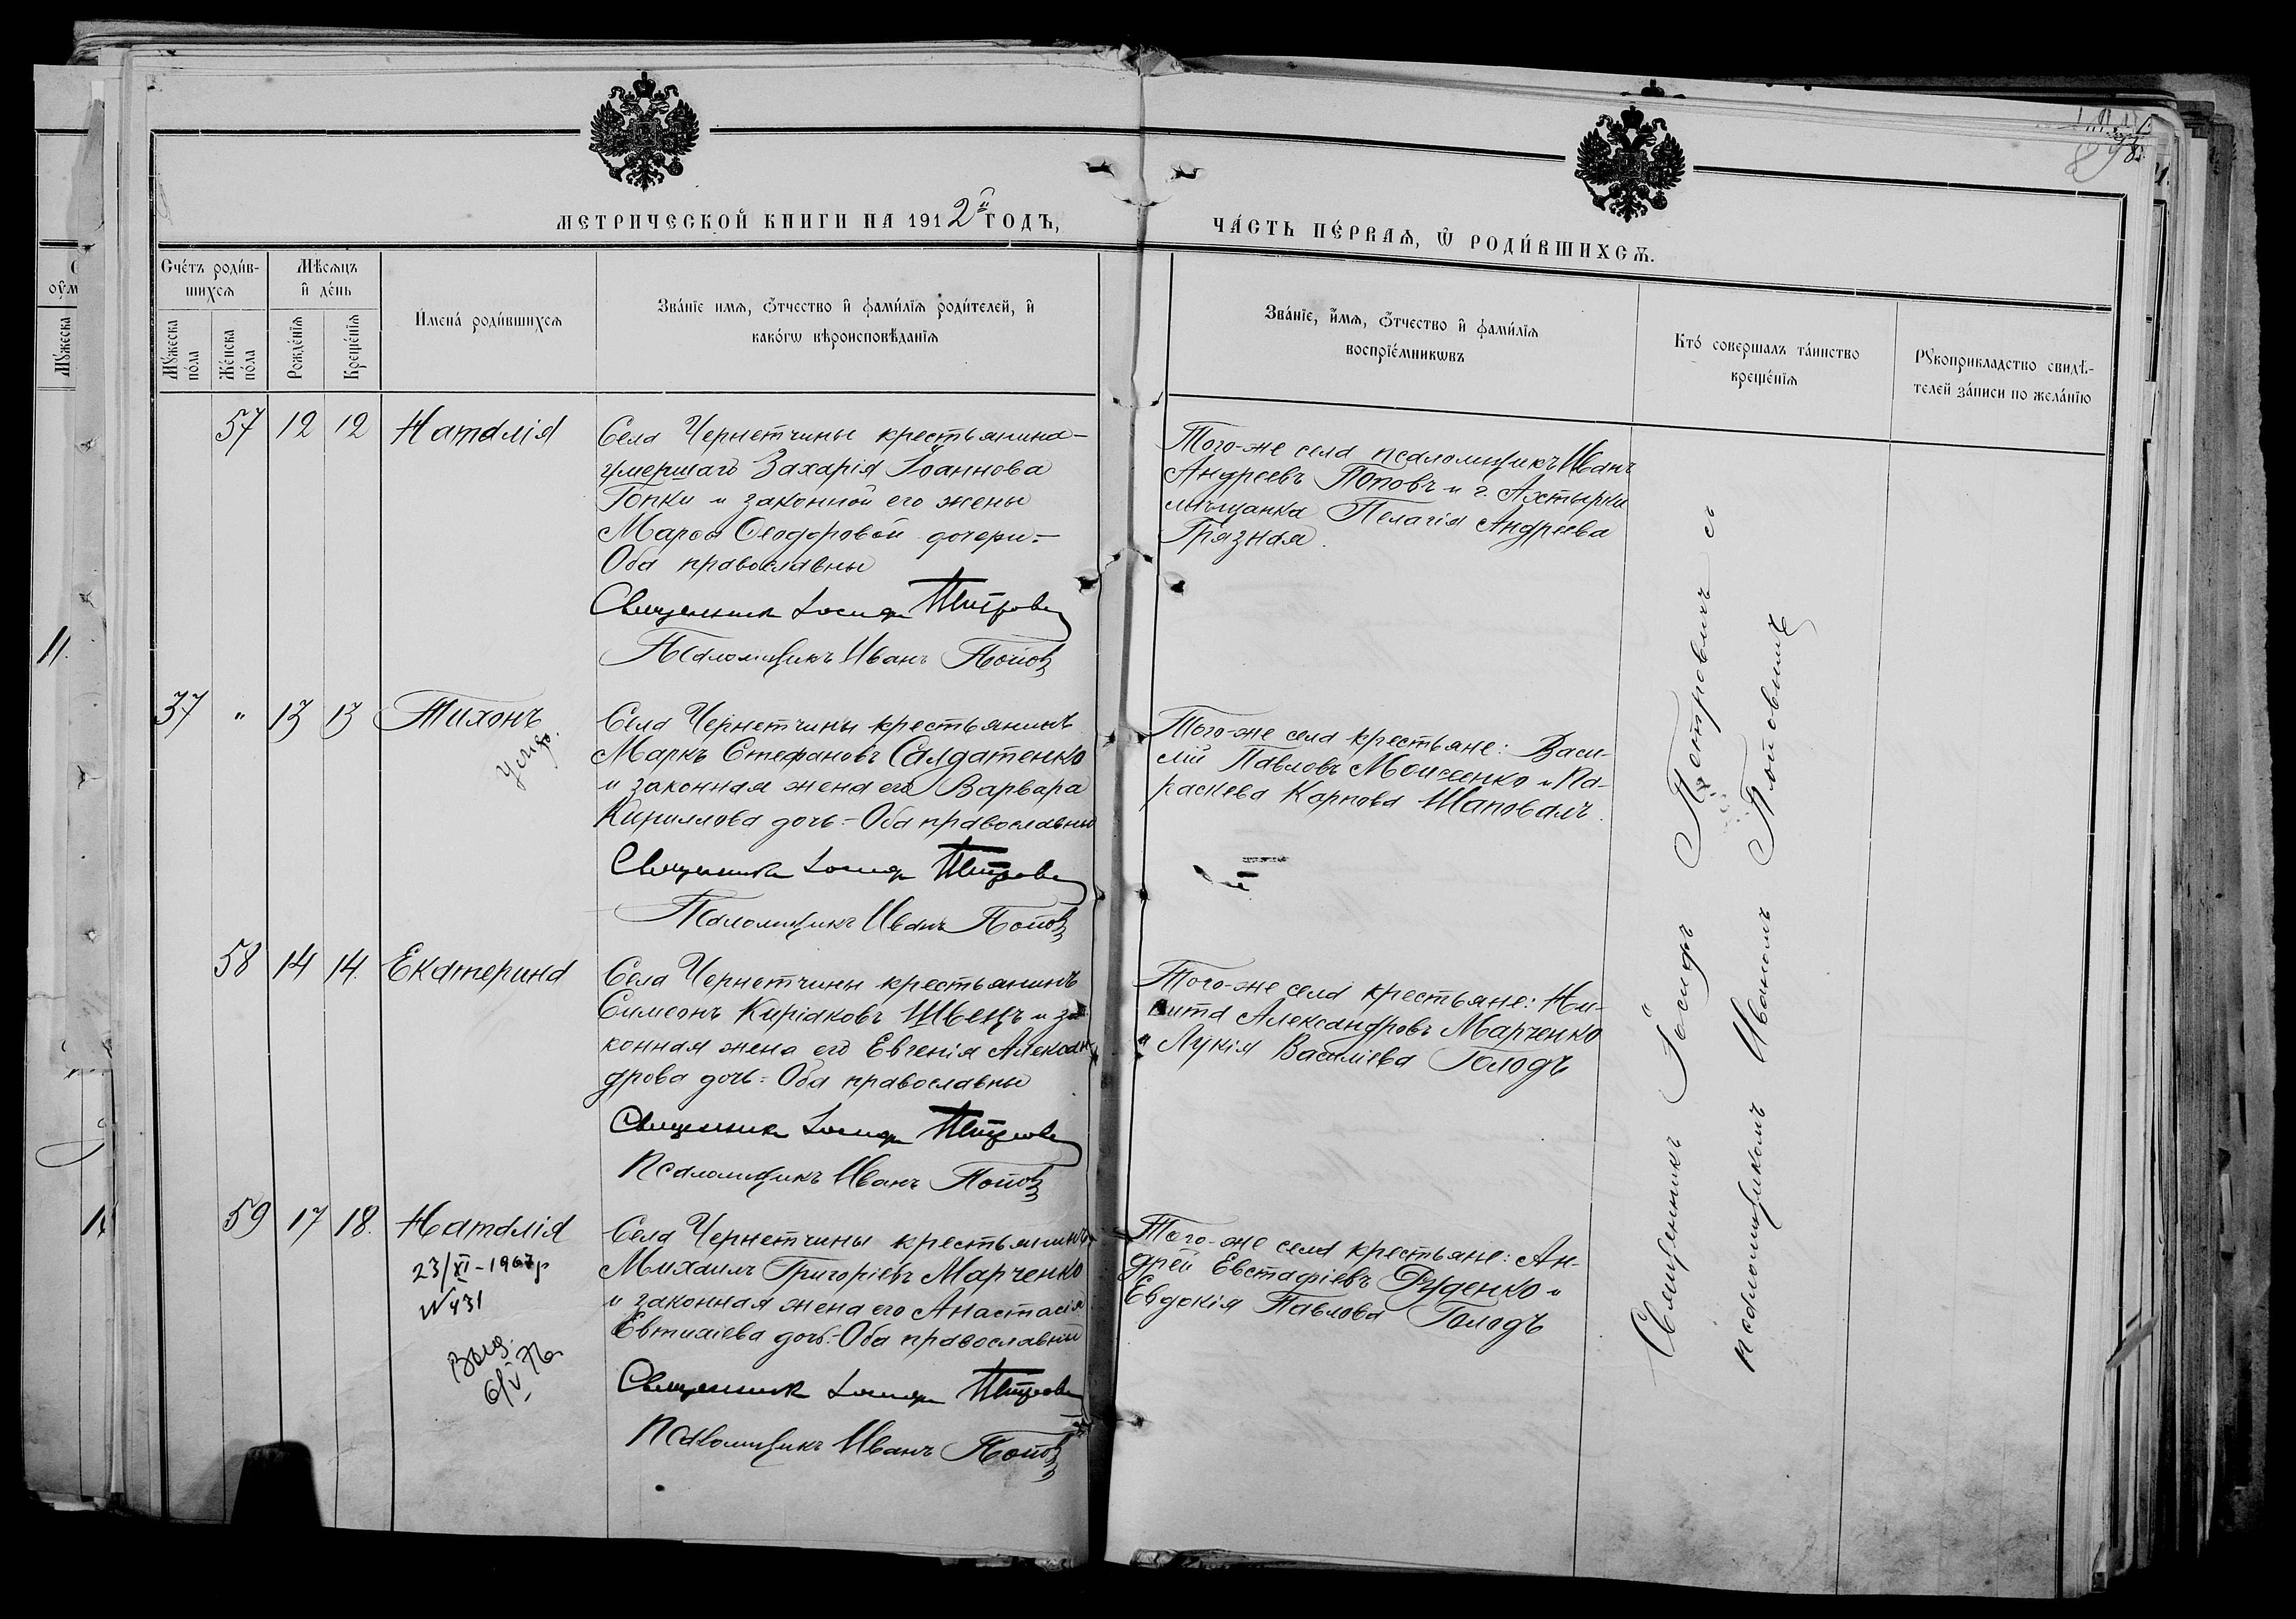 МЕТРИЧЕСКОЙ КНИГИ НА 1912й ГОДЪ,
ЧА́СТЬ ПЕ́РВАѦ, Ѿ РОДИ́ВШИХСѦ.
Сче́тъ роди́в-
шихсѧ
Мꙋ́жеска
по́ла
Же́нска
по́ла
Мѣ́сѧцъ
и҆ де́нь
Рожде́нїѧ
Креще́нїѧ
И҆мена́ роди́вшихсѧ
Зва́нїе имѧ, ѻ҆́тчество и҆ фами́лїѧ роди́телей, и҆
како́гѡ вѣроисповѣ́данїѧ
Зва́нїе, и҆́мѧ, ѻ҆́тчество и҆ фами́лїѧ
воспрїе́мникѡвъ
Кто́ совершалъ та́инство
креще́нїѧ
Рꙋкоприкладство свидѣ́-
телей за́писи по жела́нїю
57 12 12 Наталія
Села Чернетчины крестьянина-
умершаго Захарія Іоаннова
Гопки и законной его жены
Марѳы Ѳеодоровой дочери.-
Оба православны
Священникъ Іосифъ Петрович
Псаломщикъ Иванъ Попов
Того-же села псаломщикъ Иванъ
Андреевъ Поповъ и г. Ахтырки
мѣщанка Пелагія Андреева
Грязная.
37 " 13 13 Тихонъ
умер.
Села Чернетчины крестьянинъ
Маркъ Стефановъ Салдатенко
и законная жена его Варвара
Кириллова дочь.-Оба православны
Священникъ Іосифъ Петрович
Псаломщикъ Иванъ Попов
Того-же села крестьяне: Васи-
лій Павловъ Моисеенко и Па-
раскева Карпова Шаповалъ.
58 14 14. Екатерина
Села Чернетчины крестьянинъ
Симеонъ Киріаковъ Швецъ и за-
конная жена его Евгенія Алексан-
дрова дочь.- Оба православны
Священникъ Іосифъ Петрович
Псаломщикъ Иванъ Попов
Того-же села крестьяне: Ни-
кита Александровъ Марченко
и Лукія Василіева Голодъ
59 17 18. Наталія
23/XI-1967р
N 431
Выд.
6/V 76
Села Чернетчины крестьянинъ
Михаилъ Григоріевъ Марченко
и законная жена его Анастасія
Евтихіева дочь.-Оба православны
Священникъ Іосифъ Петрович
Псаломщикъ Иванъ Попов
Того-же села крестьяне: Ан-
дрей Евстафіевъ Руденко и
Евдокія Павлова Голодъ
Священникъ Іосифъ Петровичъ съ
псаломщикомъ Иваномъ Поповымъ
11.